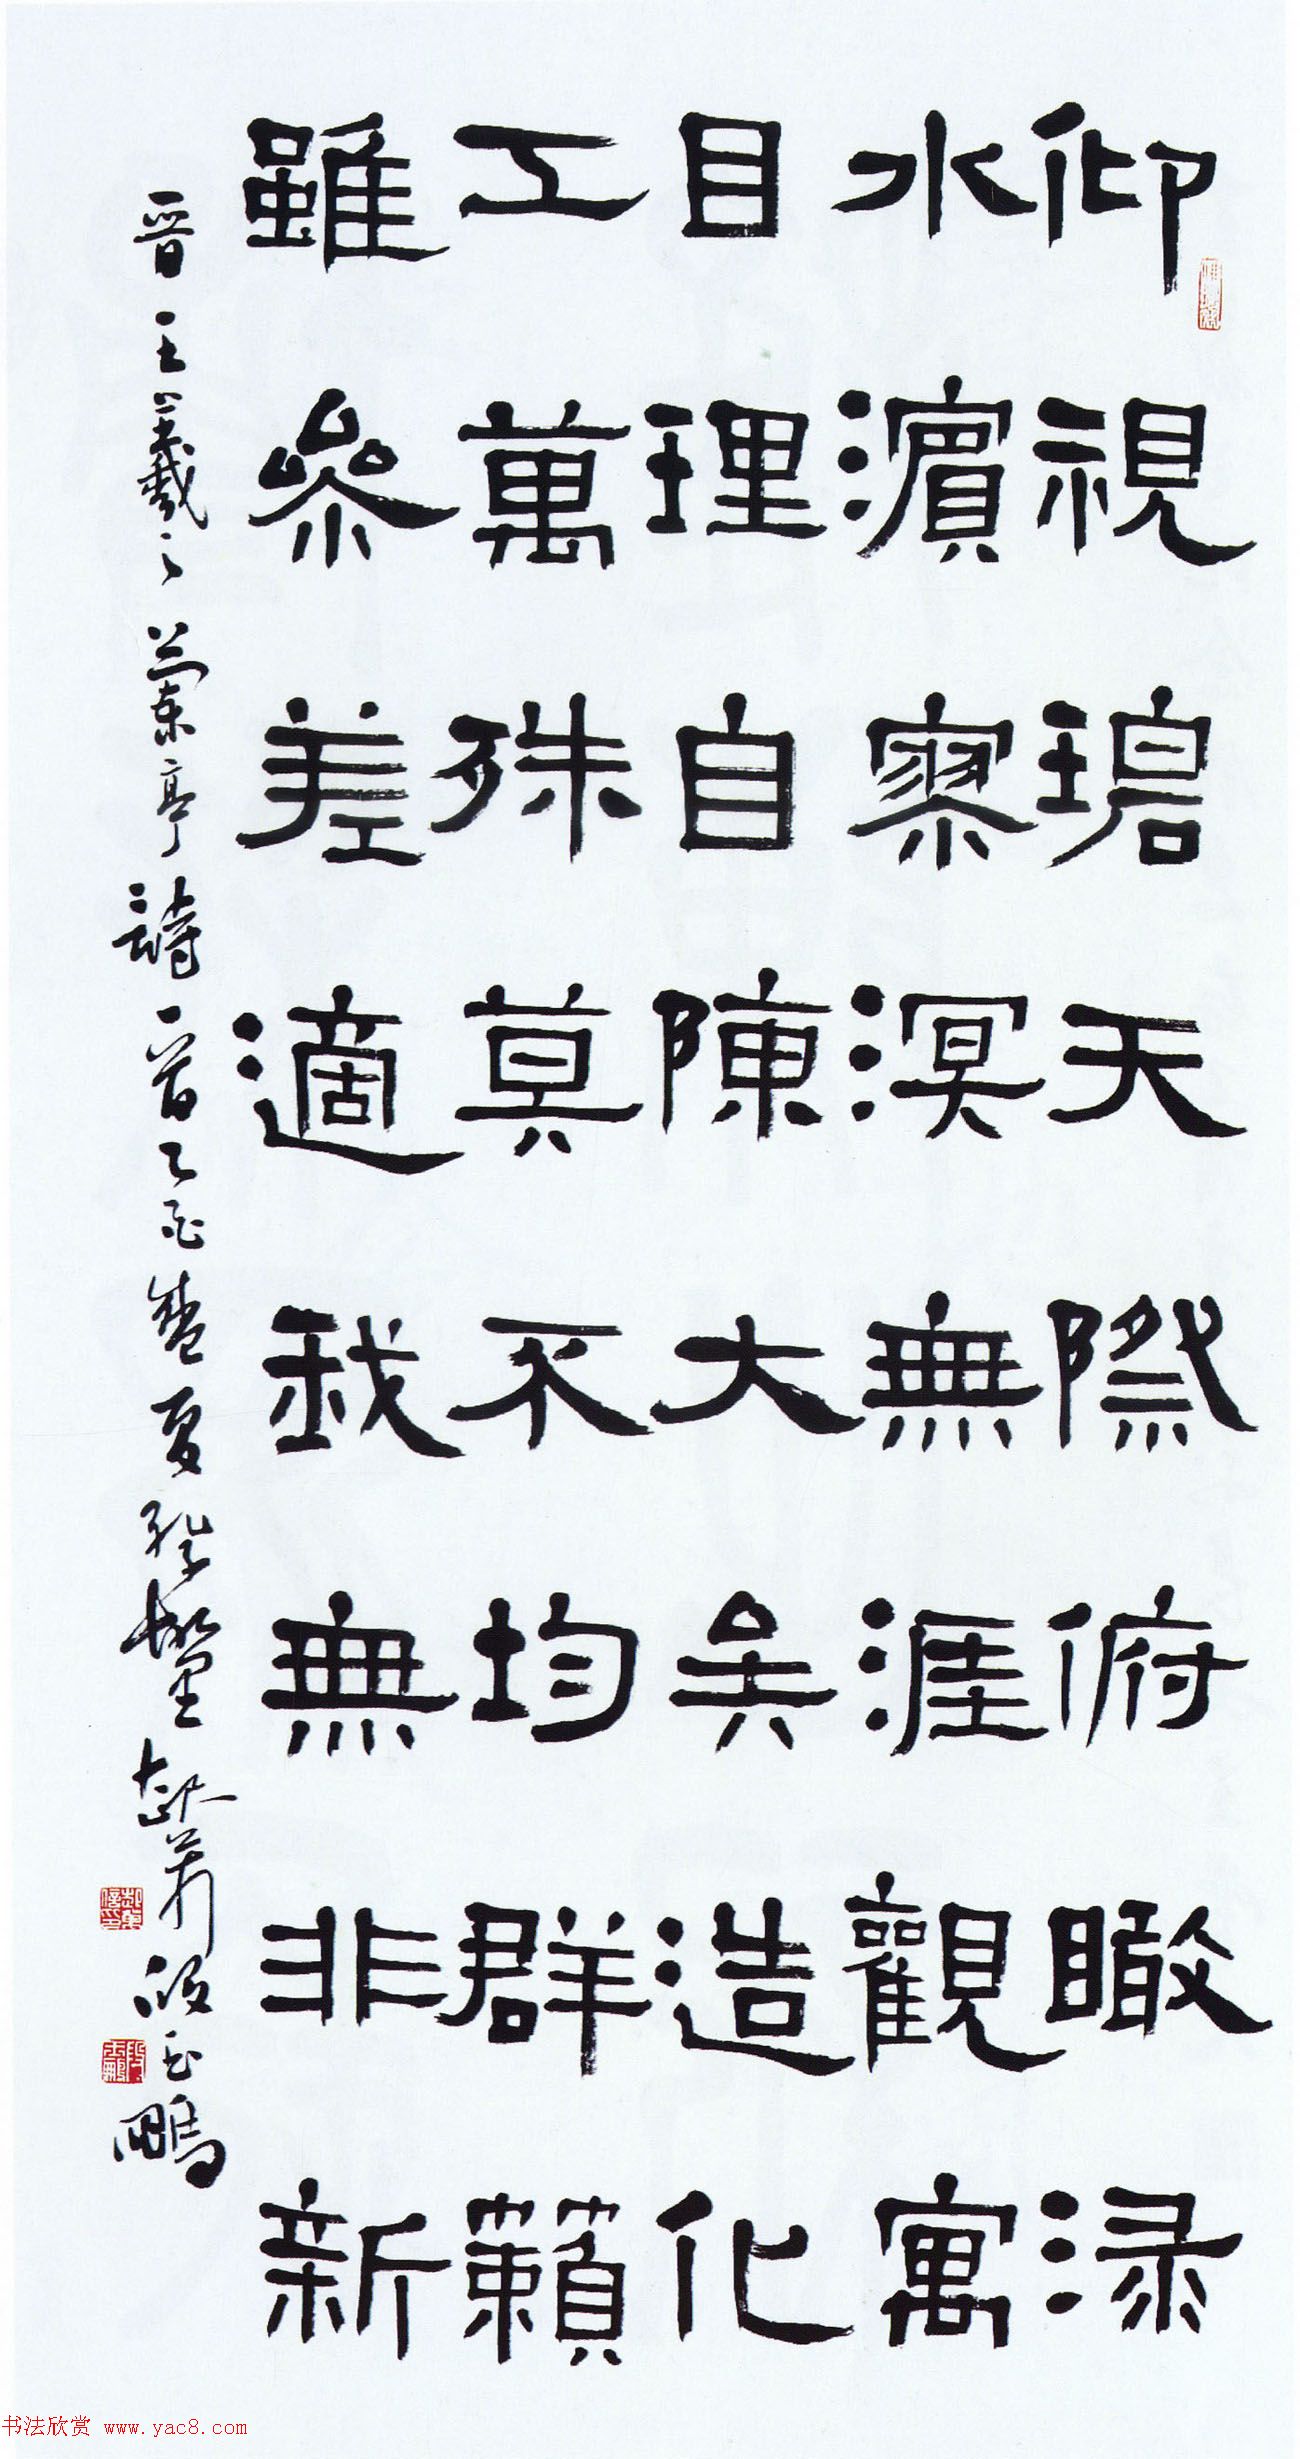 仰視碧天際俯瞰渌
水濱寥溟無涯觀寓
目理自陳大矣造化
工萬殊莫不均群籟
雖參差適我無非新
晉王羲之蘭亭詩一首乙酉盛夏 段玉鵬
书法欣赏 www.yac8.com